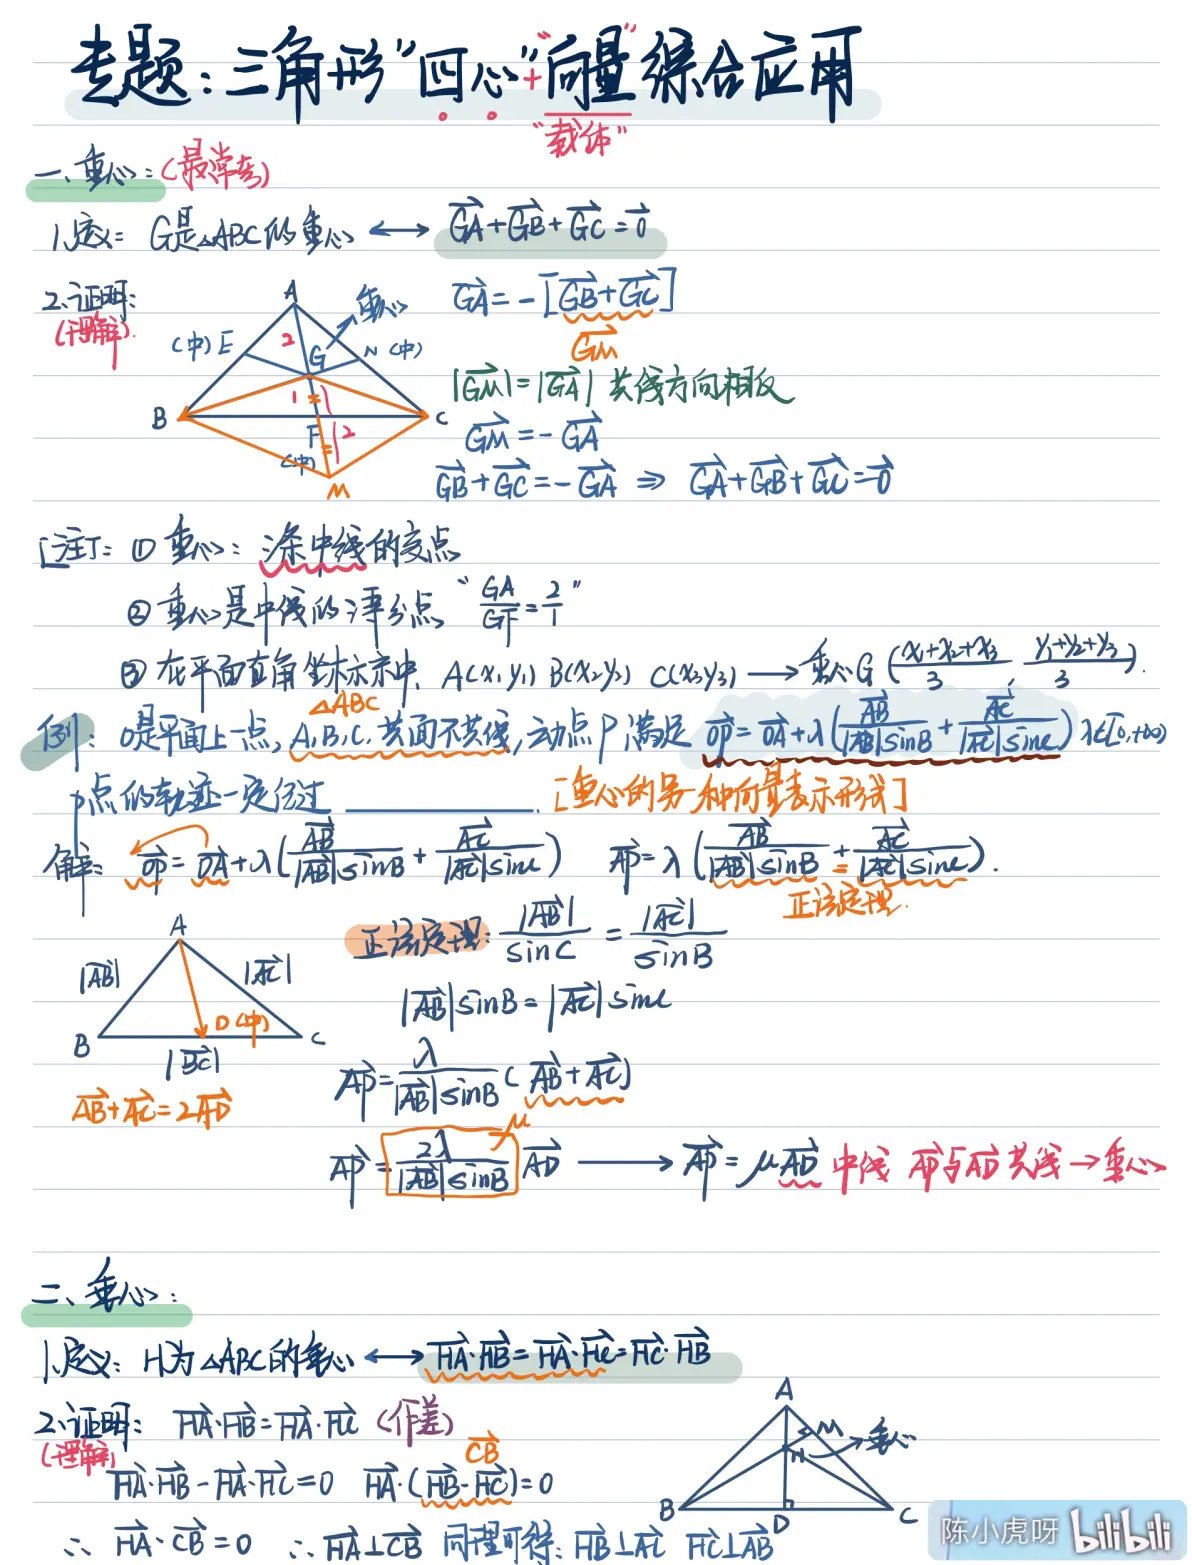 专题：三角形"四心"+"向量"综合应用
"载体"
一、重心：(最常考)
1.定义：G是△ABC的重心 ⟷ GA+GB+GC=0
2.证明：
(理解)
GA=-[GB+GC]
GM
|GM|=|GA| 共线方向相反
GM=-GA
GB+GC=-GA ⇒ GA+GB+GC=0
A
重心
(中)E
2
G
N(中)
B
1
C
F
2
(中)
M
[注]：① 重心：三条中线的交点
② 重心是中线的三等分点 "GA/GF=2/1"
③ 在平面直角坐标系中，A(x₁y₁) B(x₂y₂) C(x₃y₃) ⟶ 重心G(x₁+x₂+x₃/3, y₁+y₂+y₃/3).
△ABC
例：O是平面上一点，A.B.C.共面不共线，动点P满足 OP=OA+λ(AB/|AB|sinB+AC/|AC|sinC) λ∈[0,+∞)
P点的轨迹一定经过 ________. [重心的另一种向量表示形式]
解：OP=OA+λ(AB/|AB|sinB+AC/|AC|sinC) AP=λ(AB/|AB|sinB+AC/|AC|sinC).
=
正弦定理.
正弦定理：|AB|/sinC=|AC|/sinB
|AB|sinB=|AC|sinC
A
|AB|
|AC|
D(中)
B
C
|BC|
AB+AC=2AD
AP=λ/|AB|sinB(AB+AC)
μ
AP=2λ/|AB|sinB AD ⟶ AP=μAD 中线 AP与AD共线→重心
二、垂心：
1.定义：H为△ABC的垂心 ⟷ HA·HB=HA·HC=HC·HB
2.证明：HA·HB=HA·HC (作差)
(理解)
CB
HA·HB-HA·HC=0 HA·(HB-HC)=0
∴ HA·CB=0 ∴ HA⊥CB 同理可得：HB⊥AC HC⊥AB
A
M
H
垂心
B
D
C
陈小虎呀 bilibili